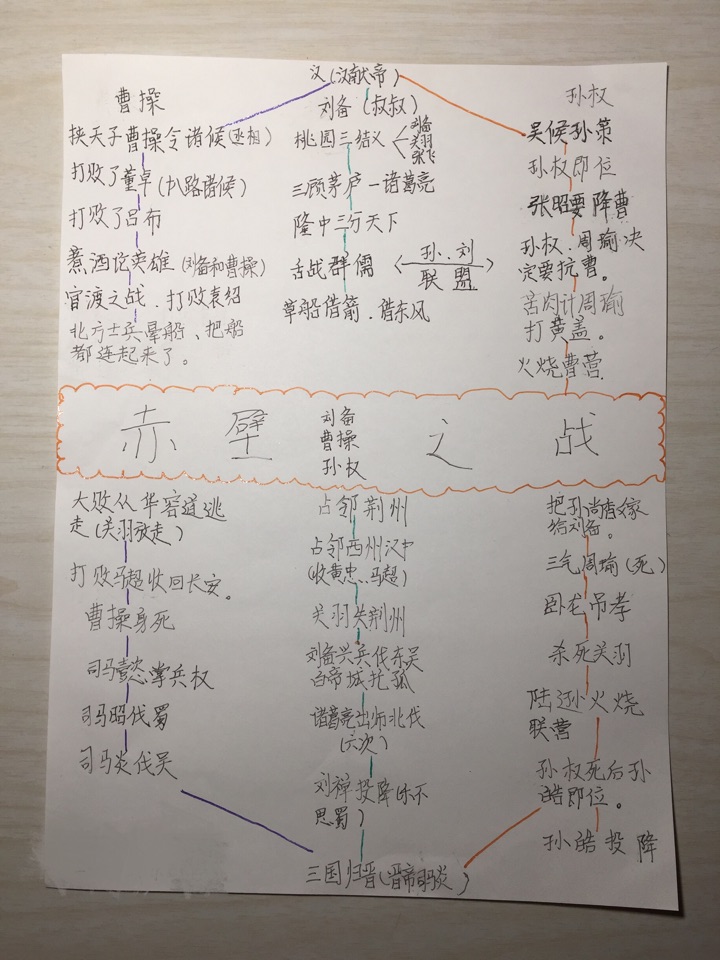 汉(汉献帝)
曹操
挟天子曹操令诸候(丞相)
打败了董卓(扒路诸候)
打败了吕布
煮酒论英雄(刘备和曹操)
官渡之战.打败袁绍
北方士兵晕船、把船
都连起来了。
刘备(叔叔)
桃园三结义
刘备
关羽
张飞
三顾茅庐一诸葛亮
隆中三分天下
舌战群儒
孙..刘
联盟
草船借箭.借东风
孙权
吴候孙策
孙权即位
张昭要降曹
孙权.周瑜决
定要抗曹。
苦肉计周瑜
打黄盖。
火烧曹营.
赤壁之战
刘备
曹操
孙权
大败从华容道逃
走(关羽放走)
打败马超收回长安。
曹操身死
司马懿掌兵权
司马昭伐蜀
司马炎伐吴
占邻荆州
占邻西州汉中
(收黄忠..马超)
关羽失荆州
刘备兴兵伐东吴
白帝城托孤
诸葛亮出师北伐
(六次)
刘禅投降(乐不
思蜀)
把孙尚香嫁
给刘备。
三气周瑜(死)
卧龙吊孝
杀死关羽
陆逊火烧
联营
孙权死后孙
皓即位。
孙皓投降
三国归晋(晋帝司马炎)